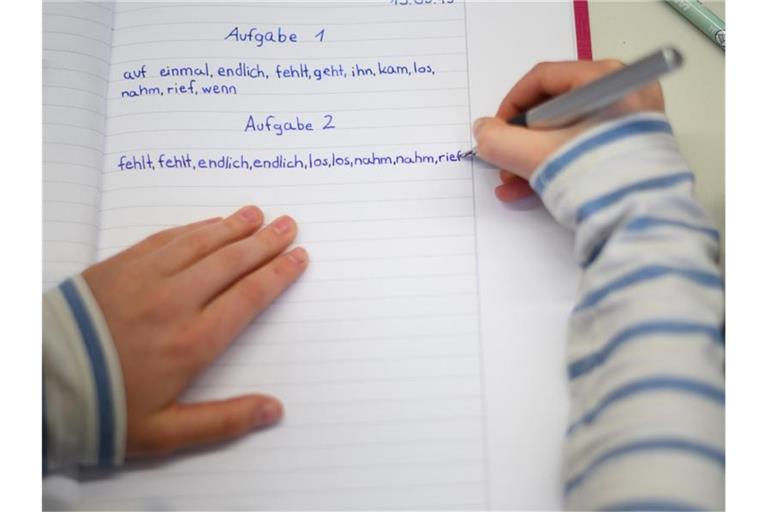 Aufgabe 1
auf einmal, endlich, fehlt, geht, ihn, kam, los,
nahm, rief, wenn
Aufgabe 2
fehlt, fehlt, endlich, endlich, los, los, nahm, nahm, rief